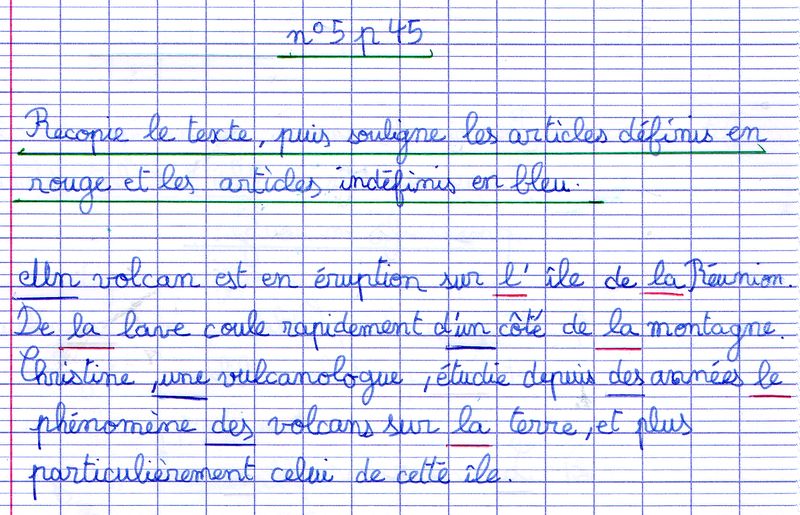 n° 5 p 45
Recopie le texte, puis souligne les articles définis en
rouge et les articles indéfinis en bleu.
Un volcan est en éruption sur l' île de la Réunion.
De la lave coule rapidement d'un côté de la montagne.
Christine, une vulcanologue, étudie depuis des années le
phénomène des volcans sur la terre, et plus
particulièrement celui de cette île.